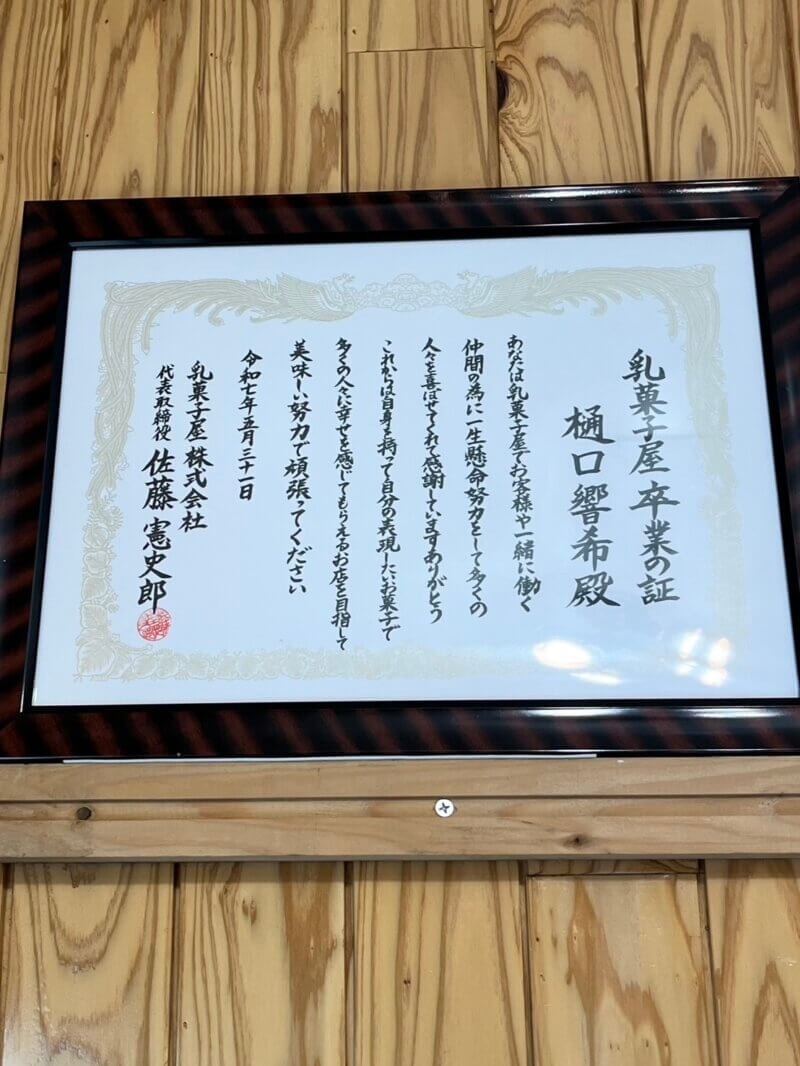 乳菓子屋 卒業の証
樋口響希殿
あなたは乳菓子屋でお客様や一緒に働く
仲間の為に一生懸命努力をして多くの
人々を喜ばせてくれて感謝していますありがとう
これからは自身を持って自分の表現したいお菓子で
多くの人々に幸せを感じてもらえるお店を目指して
美味しい努力で頑張ってください
令和七年五月三十一日
乳菓子屋 株式会社
代表取締役 佐藤憲史郎